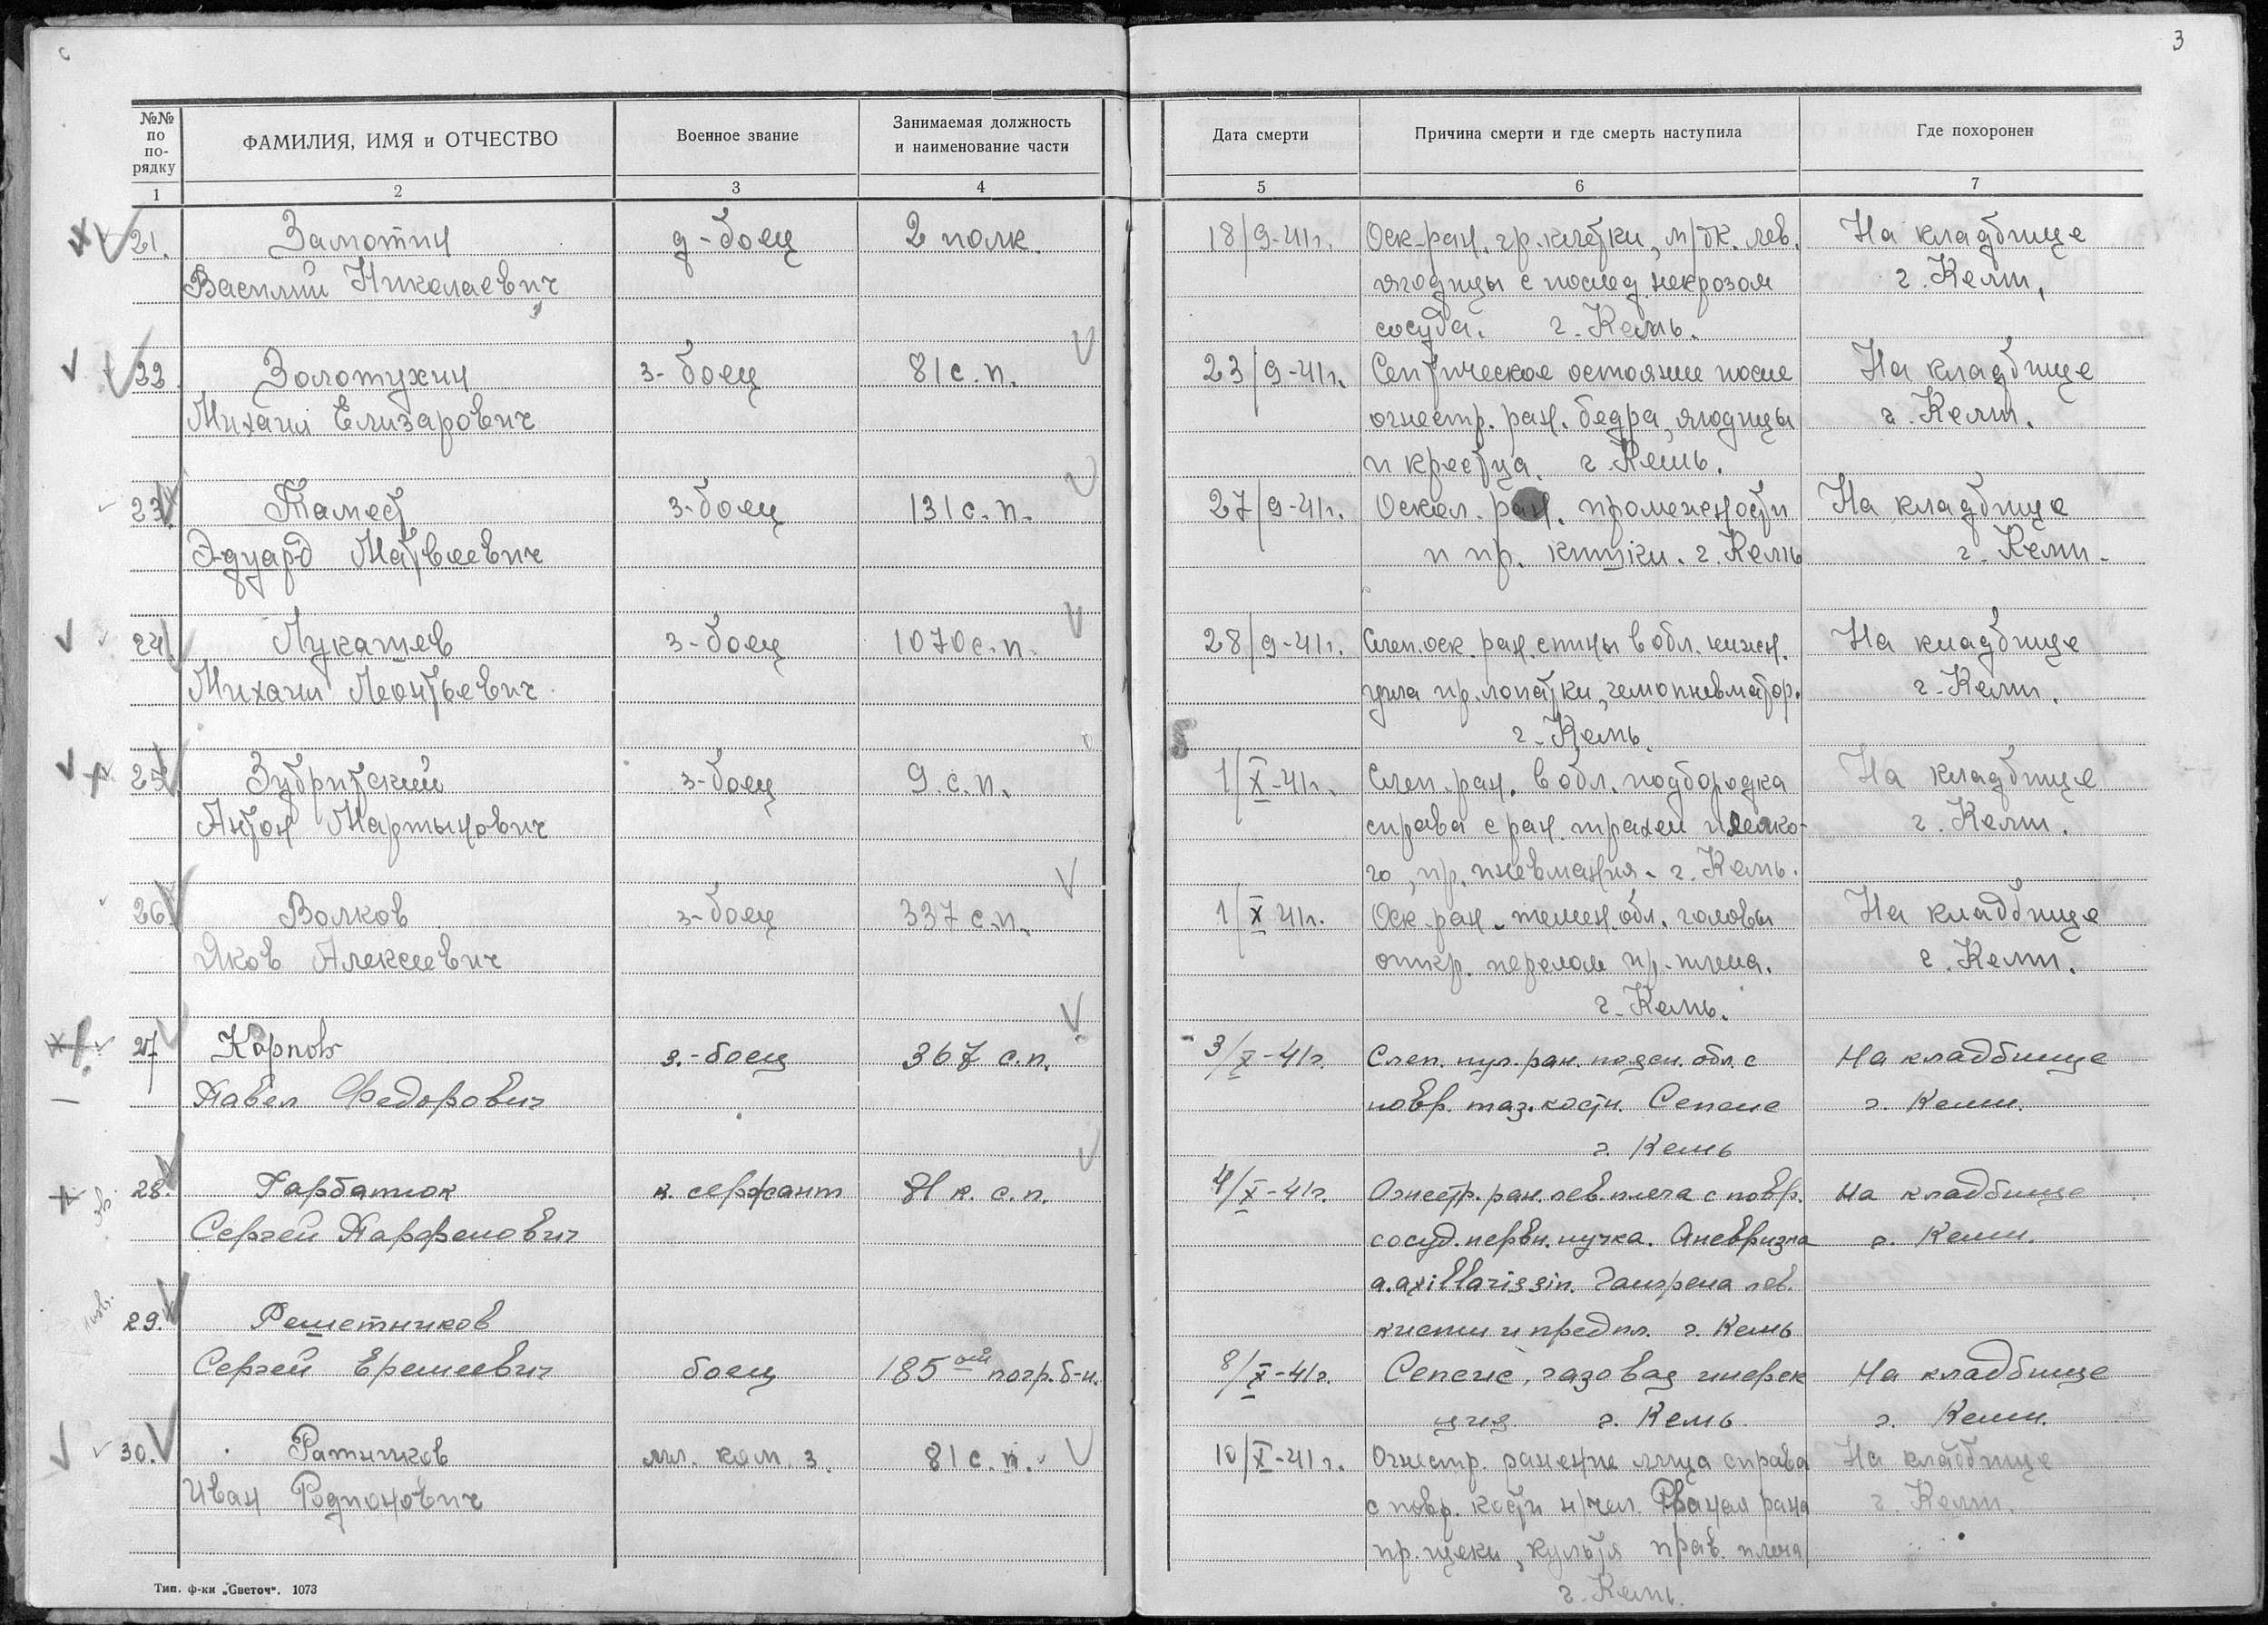 3
№№ по по-рядку
ФАМИЛИЯ, ИМЯ и ОТЧЕСТВО
Военное звание
Занимаемая должность и наименование части
Дата смерти
Причина смерти и где смерть наступила
Где похоронен
1 2 3 4 5 6 7
21. Замотин д-боец 2 полк 18/9-41г. Оск-ран. гр. клетки, м/тк. лев. На кладбище
Василий Николаевич ягодицы с послед. некрозом г. Кеми,
сосуда. г. Кемь.
22 Золотухин з-боец 81 с.п. 23/9-41г. Септическое остояние после На кладбище
Михаил Елизарович огнестр. ран. бедра, ягодицы г. Кеми.
и крестца. г. Кемь.
23. Тамест з-боец 131 с.п. 27/9-41г. Оскол. ран. промежности На кладбище
Эдуард Матвеевич и пр. кишки. г. Кемь г. Кеми.
24 Лукашев з-боец 1070 с.п. 28/9-41г. Слеп. оск. ран. спины в обл. нижн. На кладбище
Михаил Леонтьевич угла пр. лопатки, гемопневматор. г. Кеми.
г. Кемь.
25 Зубритский з-боец 9. с.п. 1/X-41г. Слеп. ран. в обл. подбородка На кладбище
Антон Мартынович справа с ран. трахеи и легко- г. Кеми.
го, пр. пневмания. г. Кемь.
26 Волков з-боец 337 с.п. 1/X 41г. Оск. ран. темен. обл. головы На кладбище
Яков Алексеевич откр. перелом пр. плеча. г. Кеми.
г. Кемь.
27 Карпов з.-боец 367 с.п. 3/X-41г. Слеп. пул. ран. поясн. обл. с На кладбище
Павел Федорович повр. таз. кости. Сепсис г. Кеми.
г. Кемь
28. Гарбатюк к. сержант 81 к. с.п. 4/X-41г. Огнестр. ран. лев. плеча с повр. На кладбище
Сергей Парфенович сосуд. нервн. пучка. Аневризма г. Кеми.
a. axillaris sin. Гангрена лев.
29. Решетников кисти и предпл. г. Кемь
Сергей Еремеевич боец 185 ой погр. б-н. 8/X-41г. Сепсис, газовая инфек На кладбище
ция г. Кемь г. Кеми.
30. Ратников мл. ком. з. 81 с.п. 10/X-41г. Огнестр. ранение лица справа На кладбище
Иван Родионович с повр. кости н/чел. Рваная рана г. Кеми.
пр. щеки, культя прав. плеча
г. Кемь.
Тип. ф-ки „Светоч“. 1073